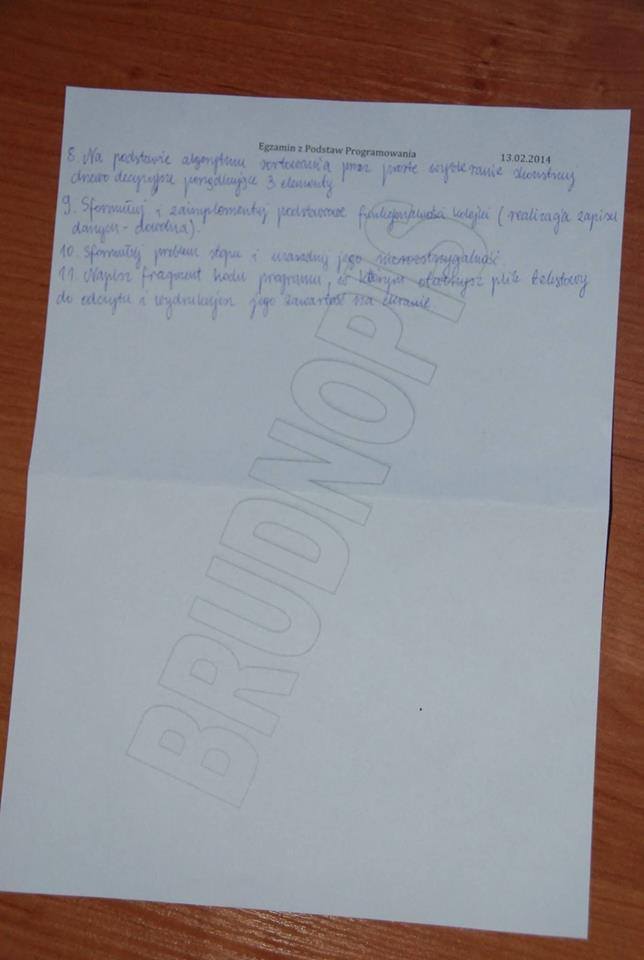 Egzamin z Podstaw Programowania 13.02.2014
8. Na podstawie algorytmu sortowania przez proste wybieranie skonstruuj
drzewo decyzyjne porządkujące 3 elementy
9. Sformułuj i zaimplementuj podstawowe funkcjonalności kolejki (realizacja zapisu
danych - dowolna).
10. Sformułuj problem stopu i uzasadnij jego nierozstrzygalność
11. Napisz fragment kodu programu, w którym otworzysz plik tekstowy
do odczytu i wydrukujesz jego zawartość na ekranie.
BRUDNOPIS